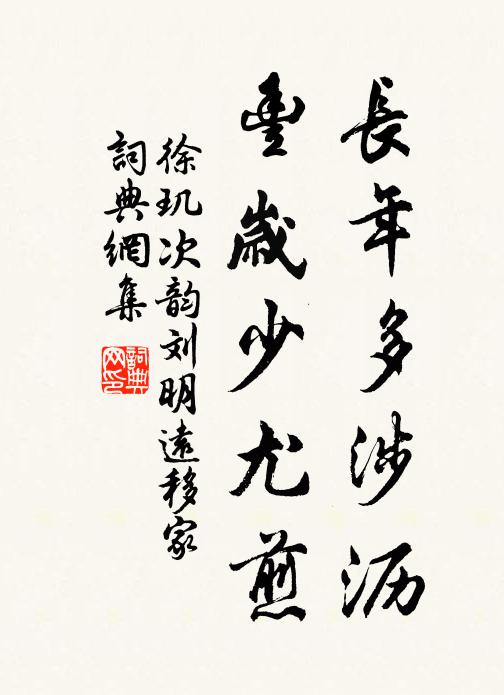 長年多涉沥
豐歲少尤煎
徐玑次韵刘明遠移家
詞典網集
詞典网印